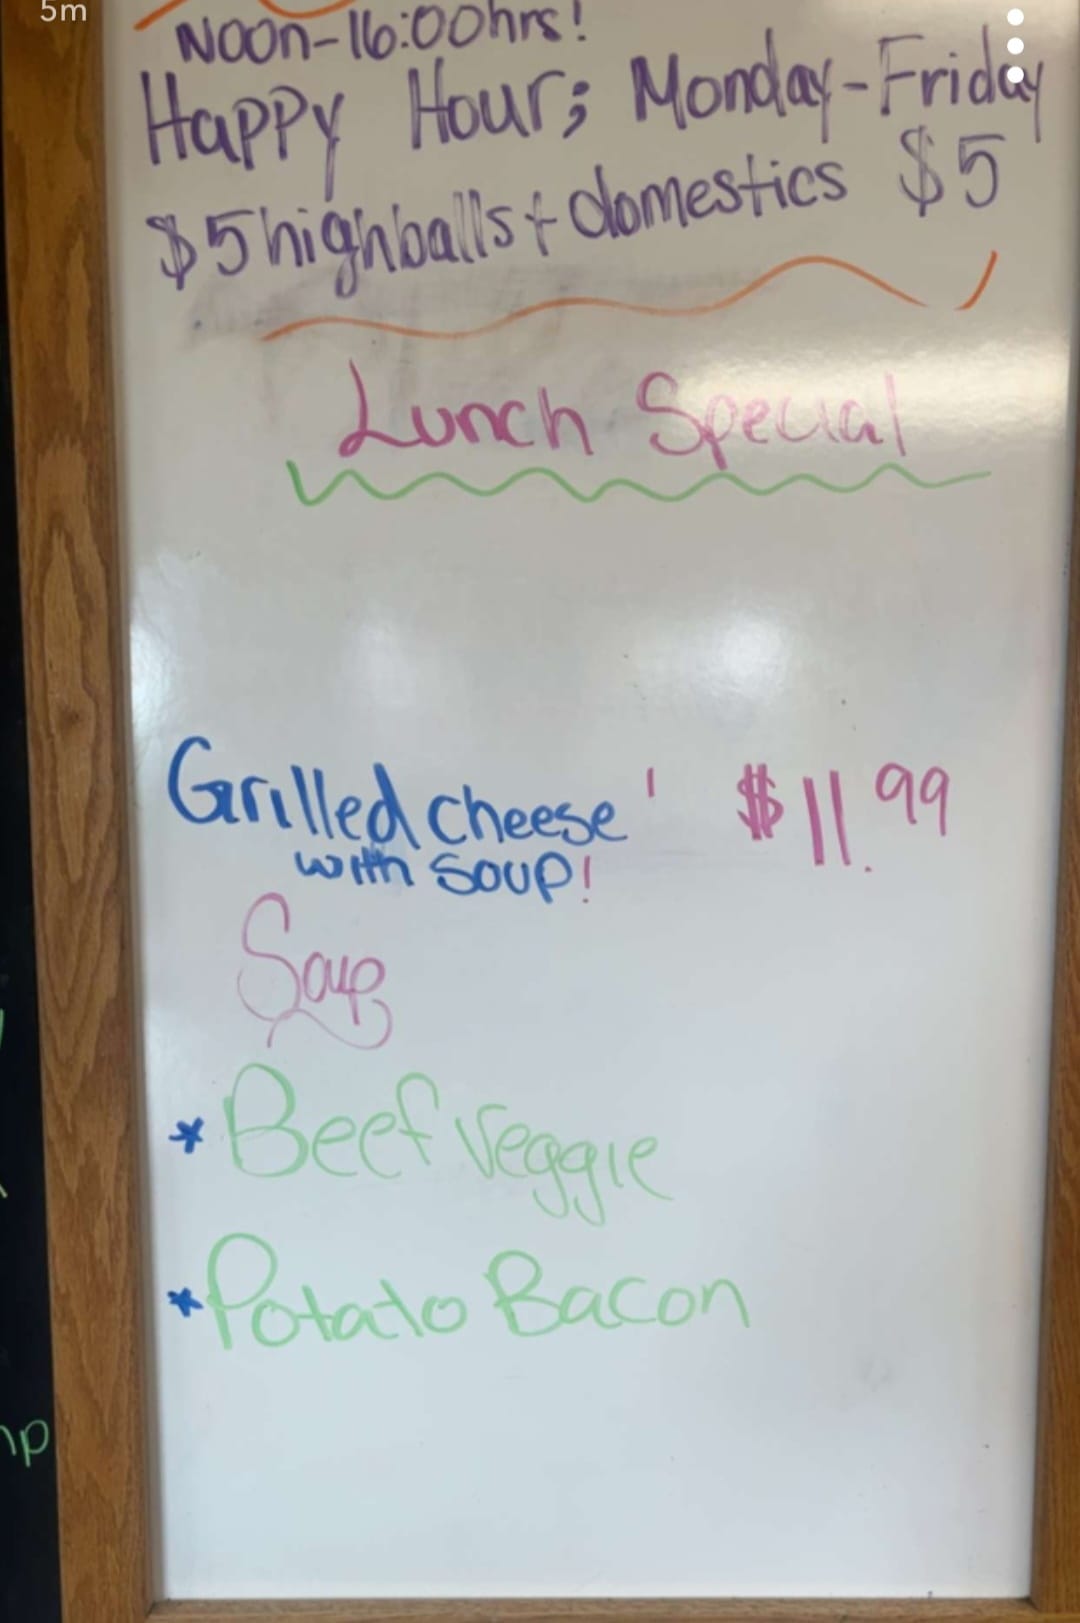 5m
Noon-16:00hrs!
Happy Hour; Monday-Friday
$5 highballs + domestics $5
Lunch Special
Grilled cheese ' $11.99
with soup!
Soup
* Beef Veggie
* Potato Bacon
np